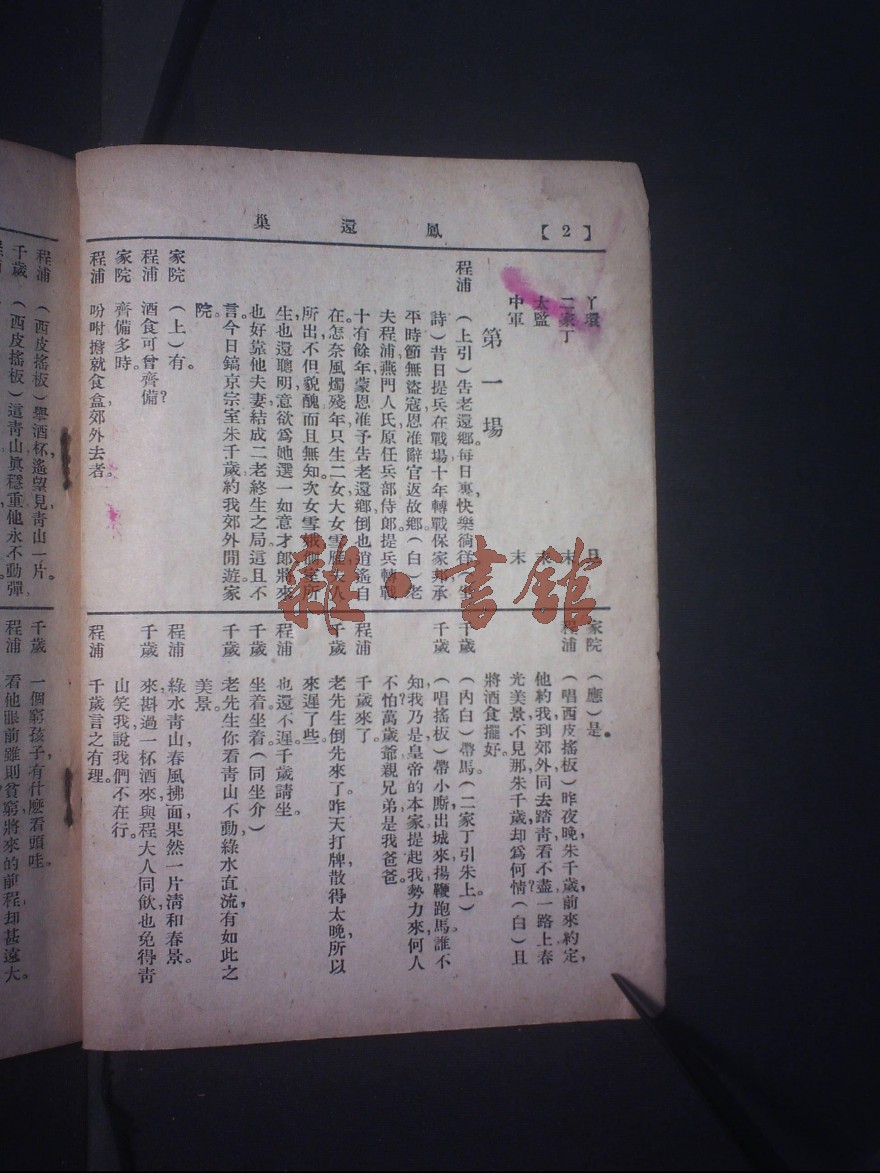 【2】 鳳還巢
丫環 旦
二家丁 末
太監 末
中軍 末
第一場
程浦 （上引）告老還鄉，每日裏，快樂徜徉。（坐
詩）昔日提兵在戰場，十年轉戰保家邦，承
平時節無盜寇，恩准辭官返故鄉。（白）老
夫程浦，燕門人氏，原任兵部侍郎，提兵轉戰
十有餘年，蒙恩准予告老還鄉，倒也逍遙自
在。怎奈風燭殘年，只生二女，大女雪雁，夫人
所出，不但貌醜，而且無知。次女雪娥，側室所
生，也還聰明，意欲爲她選一如意才郎，將來
也好靠他夫妻，結成二老終生之局。這且不
言，今日鎬京宗室朱千歲，約我郊外閒遊。家
院。
家院 （上）有。
程浦 酒食可曾齊備？
家院 齊備多時。
程浦 吩咐擔就食盒，郊外去者。
家院 （應）是。
程浦 （唱西皮搖板）昨夜晚，朱千歲，前來約定，
他約我，到郊外，同去踏靑，看不盡，一路上，春
光美景，不見那，朱千歲，却爲何情？（白）且
將酒食擺好。
千歲 （內白）帶馬。（二家丁引朱上）
千歲 （唱搖板）帶小廝，出城來，揚鞭跑馬，誰不
知，我乃是，皇帝的本家，提起我，勢力來，何人
不怕？萬歲爺，親兄弟，是我爸爸。
程浦 千歲來了。
千歲 老先生倒先來了。昨天打牌，散得太晚，所以
來遲了些。
程浦 也還不遲，千歲請坐。
千歲 坐着坐着。（同坐介）
千歲 老先生你看靑山不動，綠水直流，有如此之
美景。
程浦 綠水靑山，春風拂面，果然一片淸和春景。
千歲 來，斟過一杯酒來，與程大人同飲，也免得靑
山笑我，說我們不在行。
程浦 千歲言之有理。
程浦 （西皮搖板）舉酒杯，遙望見，靑山一片。
千歲 （西皮搖板）這靑山，眞穩重，他永不動彈
千歲 一個窮孩子，有什麽看頭哇。
程浦 看他眼前雖則貧窮，將來的前程，却甚遠大。
雜·書館